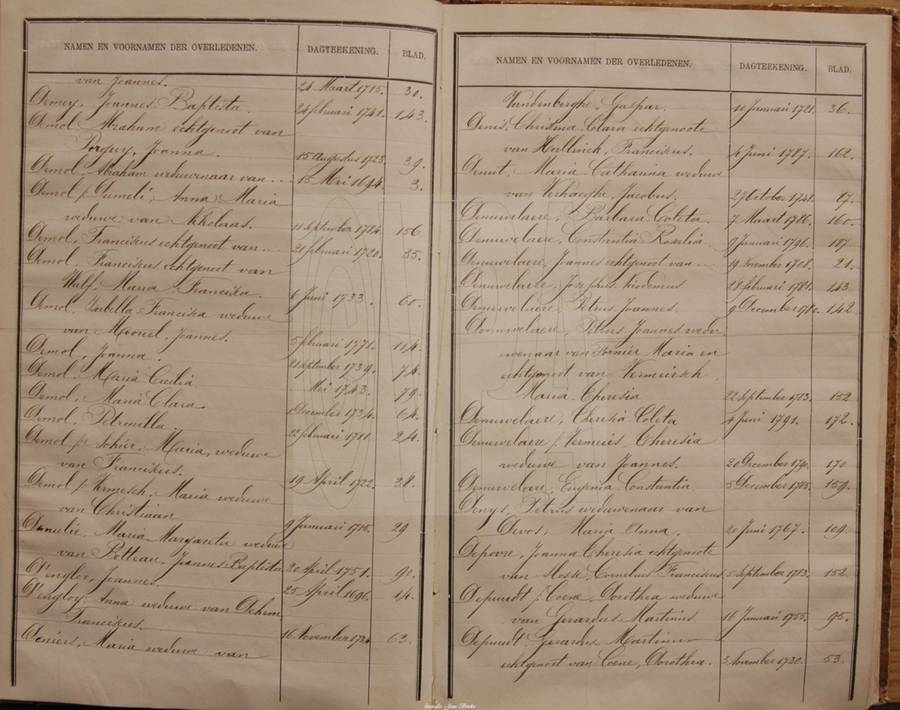 NAMEN EN VOORNAMEN DER OVERLEDENEN. DAGTEEKENING. BLAD.
van Joannes. 24 Maart 1715. 30.
Demey, Joannes Baptista 24 februari 1741. 143.
Demol, Abraham echtgenoot van
Joanna. 15 Augustus 1723. 39.
Demol, Abraham weduwenaar van ... 15 Mei 1694. 3.
Demol p/ Dumeli, Anna Maria
weduwe van Nikolaas. 11 September 1784. 156
Demol, Franciskus echtgenoot van ... 21 februari 1720. 35.
Demol, Franciskus echtgenoot van
Wulf, Maria Franciska. 6 Juni 1733. 60.
Demol, Isabella Franciska weduwe
van Joannes. 5 februari 1771. 114.
Demol, Joanna. 21 September 1739. 74.
Demol, Maria Cecilia Mei 1743. 79.
Demol, Maria Clara December 1734. 64.
Demol, Petronella 22 februari 1711. 24.
Demol p/ Schier, Maria, weduwe
van Franciskus. 19 April 1722. 38.
Demol p/ Vermesch, Maria weduwe
van Christiaan 9 Januari 1715. 29
Maria Margareta weduwe
van Potteau, Joannes Baptista 20 April 1751. 90.
D'engloy, Joannes. 25 April 1696. 14.
D'engloy, Anna weduwe van
Franciskus. 16 November 1734. 63.
Deniers, Maria weduwe van
NAMEN EN VOORNAMEN DER OVERLEDENEN. DAGTEEKENING. BLAD.
Vandenberghe, Gaspar. 11 Januari 1721. 36.
Denis, Christina Clara echtgenoote
van Franciscus. 4 Juni 1787. 162.
Denut, Maria Catharina weduwe
van Verhaeghe, Jacobus. 27 October 17.
Denuwelaere, Barbara Coleta. 7 Maart 1786. 160.
Denuwelaere, Constantia Rosalia 9 Januari 1796. 187
Denuwelaere, Joannes echtgenoot van ... 19 November 1708. 21.
Denuwelaere, Josephus 28 februari 1781. 143
Denuwelaere, Petrus Joannes. 9 December 142.
Petrus Joannes wedu-
wenaar van Maria en
echtgenoot van Vermeirsch
Maria Theresia 22 September 1783. 152
Denuwelaere, Theresia Coleta 4 Juni 1791. 172.
Denuwelaere p/ Vermeirs, Theresia
weduwe van Joannes. 20 December 170
Denuwelaere, Eugenia Constantia 5 December 1785. 159.
Denys, Petrus weduwenaar van
Devos, Maria Anna. 20 Juni 1767. 109.
Depovre, Joanna Theresia echtgenoote
van Cornelius Franciskus. September 1783. 152
Depuudt p/ Coene, Dorothea weduwe
van Gerardus Martinus 16 Januari 1755. 95.
Depuudt, Gerardus Martinus
echtgenoot van Coene, Dorothea. 3 November 1730. 53.